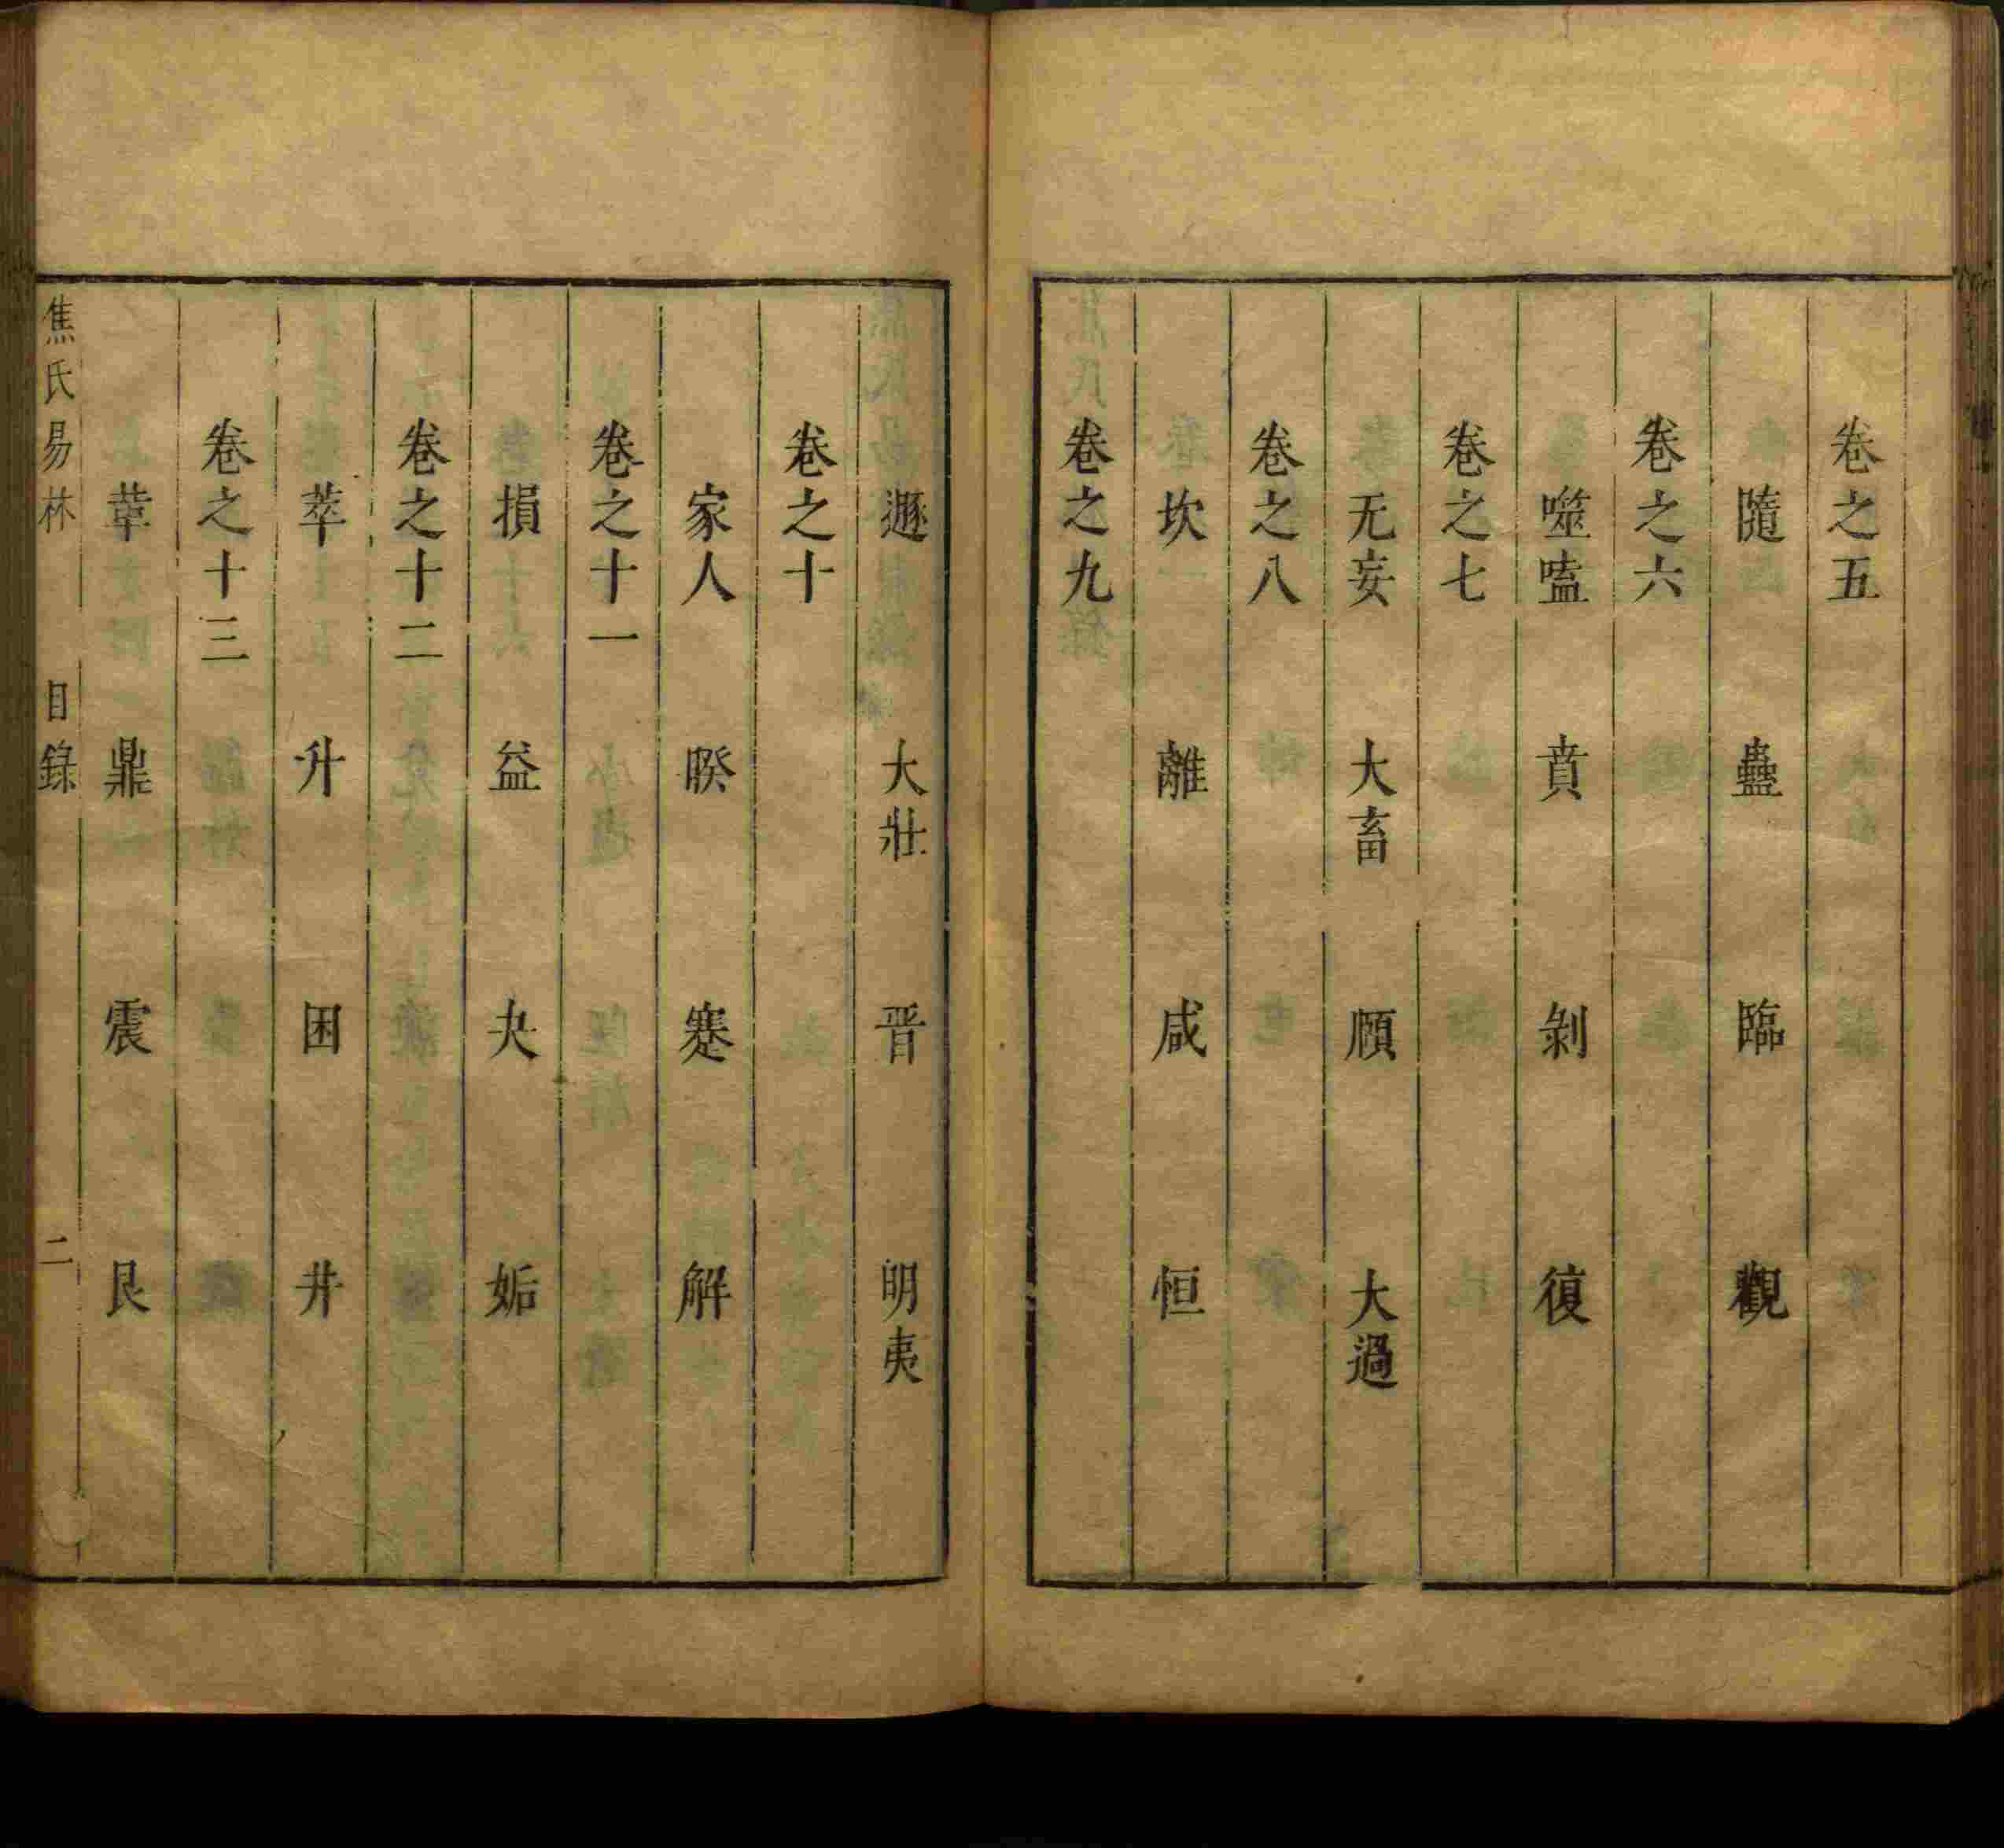 卷之五
隨 蠱 臨 觀
卷之六
噬嗑 賁 剝 復
卷之七
无妄 大畜 頤 大過
卷之八
坎 離 咸 恒
卷之九
遯 大壯 晉 明夷
卷之十
家人 暌 蹇 解
卷之十一
損 益 夬 姤
卷之十二
萃 升 困 井
卷之十三
革 鼎 震 艮
焦氏易林 目錄 二